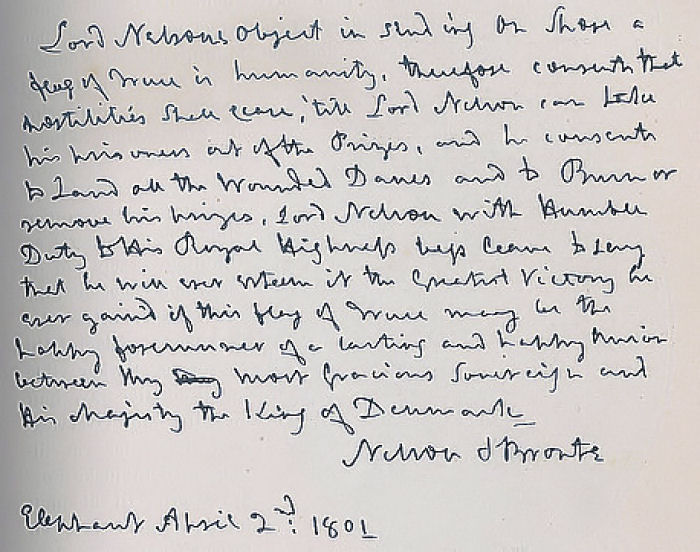 Lord Nelsons object in sending on shore a
flag of Truce is humanity, therefore consents that
hostilities shall cease, 'till Lord Nelson can take
his prisoners out of the Prizes, and he consents
to Land all the Wounded Danes and to Burn or
remove his prizes, Lord Nelson with humble
Duty to His Royal Highness begs leave to say
that he will ever esteem it the Greatest Victory he
ever gained if this flag of Truce may be the
happy forerunner of a lasting and happy Union
between my most Gracious Sovereign and
His Majesty the King of Denmark
Nelson & Bronte
Elephant April 2nd: 1801